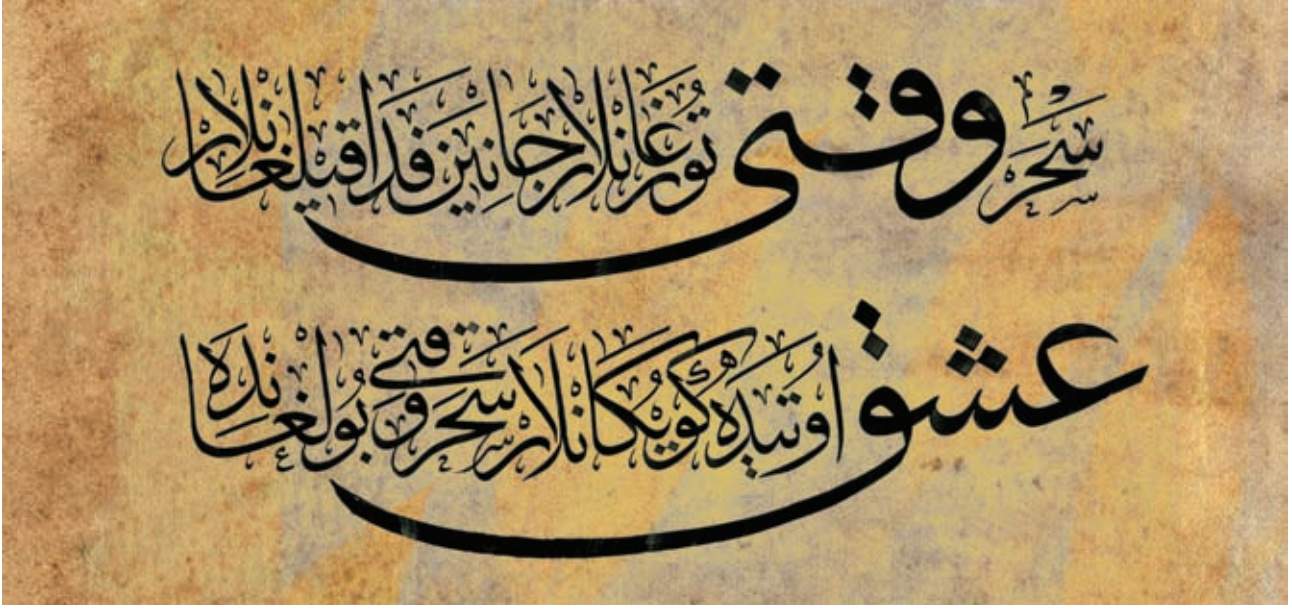 سحر وقتی تورغانلار جانین فدا قیلغانلار
عشق اوتیده کویکانلار سحر وقتی بولغانده